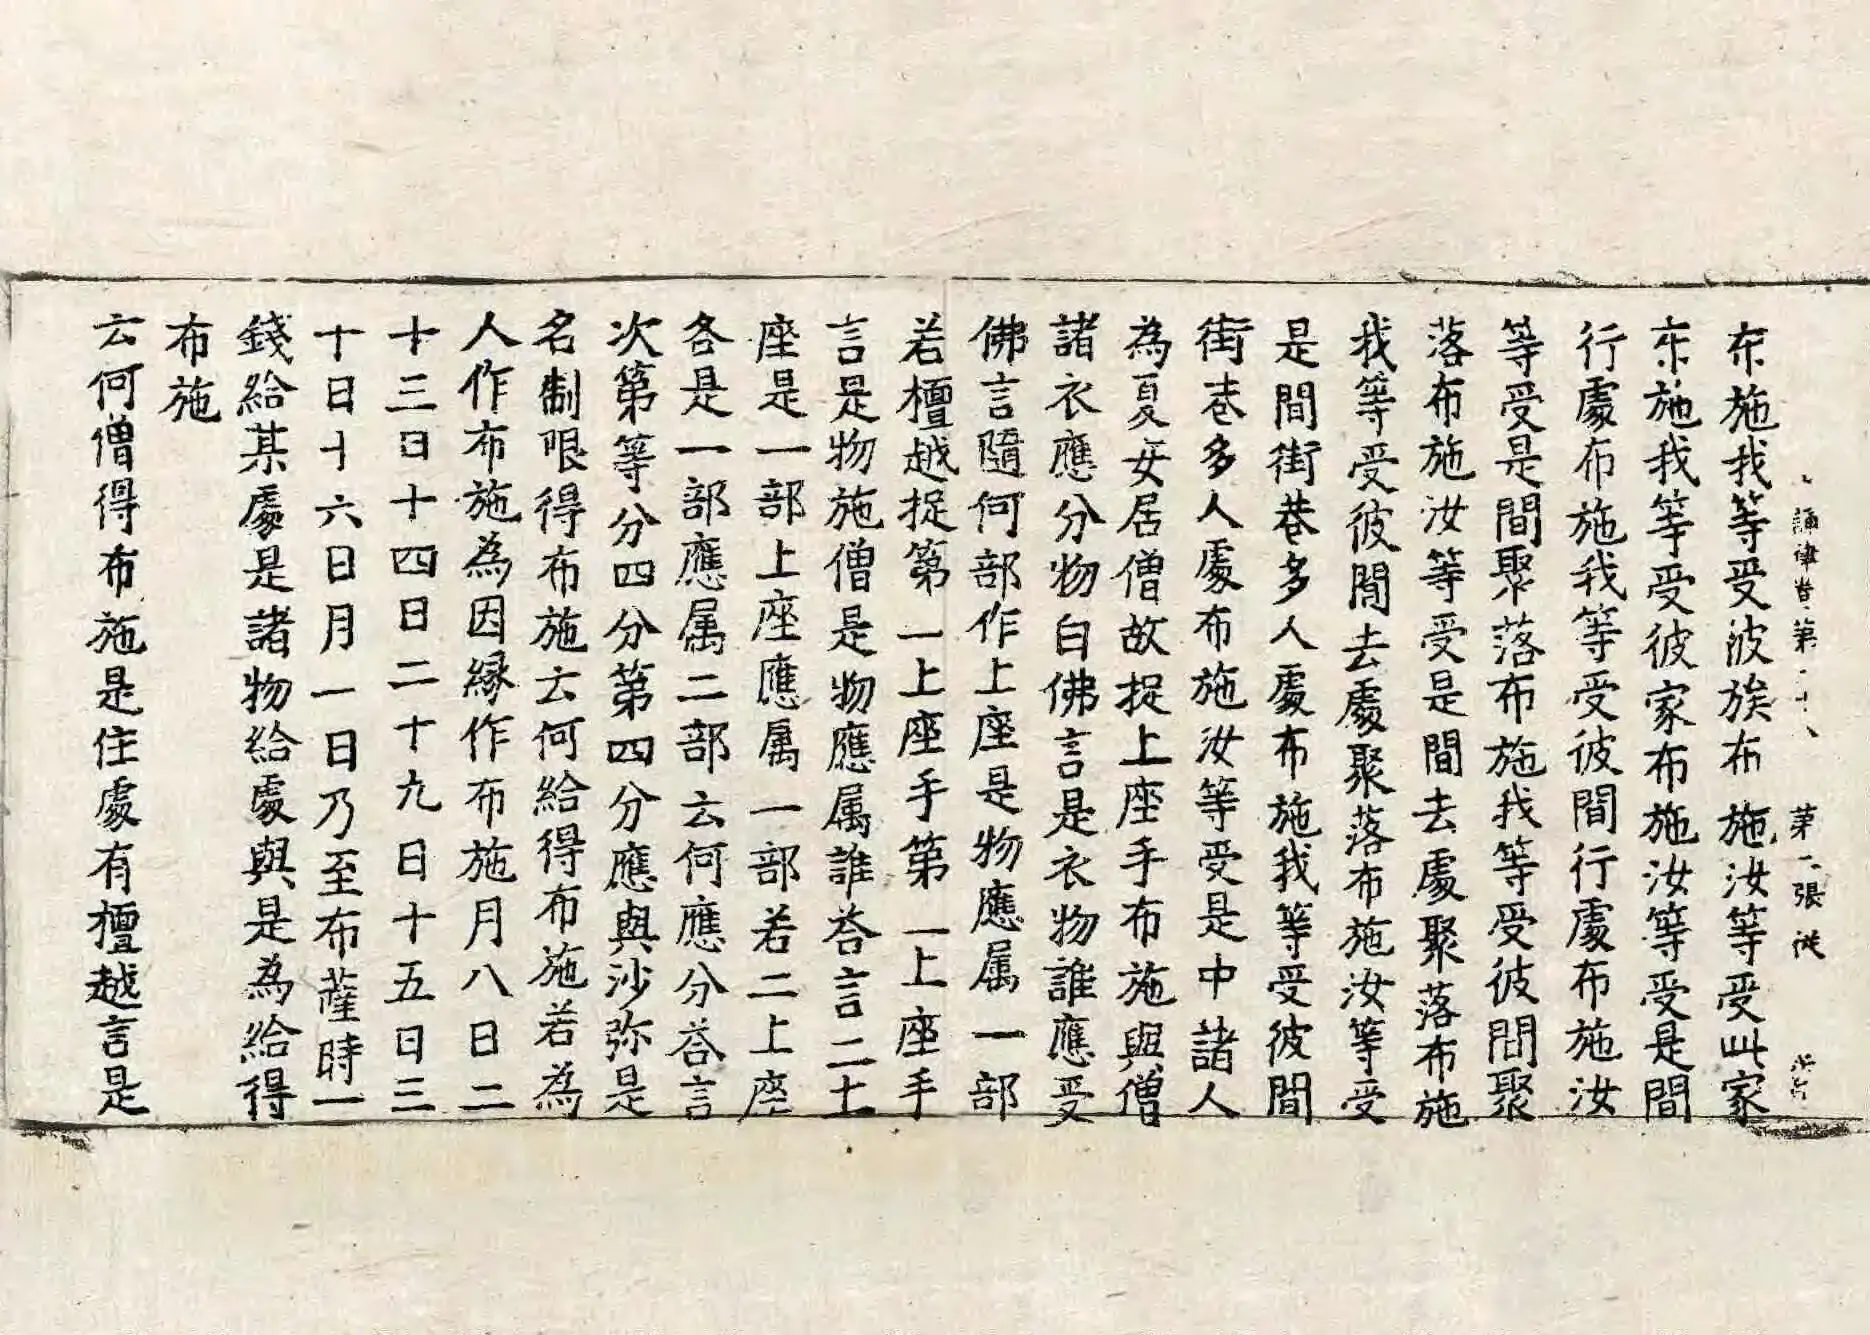 誦律卷第十八 第張 從
布施我等受彼族布施汝等受此家
布施我等受彼家布施汝等受是間
行處布施我等受彼間行處布施汝
等受是間聚落布施我等受彼間聚
落布施汝等受是間去處聚落布施
我等受彼間去處聚落布施汝等受
是間街巷多人處布施我等受彼間
街巷多人處布施汝等受是中諸人
為夏安居僧故捉上座手布施與僧
諸衣應分物白佛言是衣物誰應受
佛言隨何部作上座是物應属一部
若檀越捉第一上座手第一上座手
言是物施僧是物應属誰荅言二上
座是一部上座應属一部若二上座
各是一部應属二部云何應分荅言
次第等分四分第四分應與沙弥是
名制限得布施云何給得布施若為
人作布施為因緣作布施月八日二
十三日十四日二十九日十五日三
十日十六日月一日乃至布薩時一
錢給某處是諸物給處與是為給得
布施
云何僧得布施是住處有檀越言是